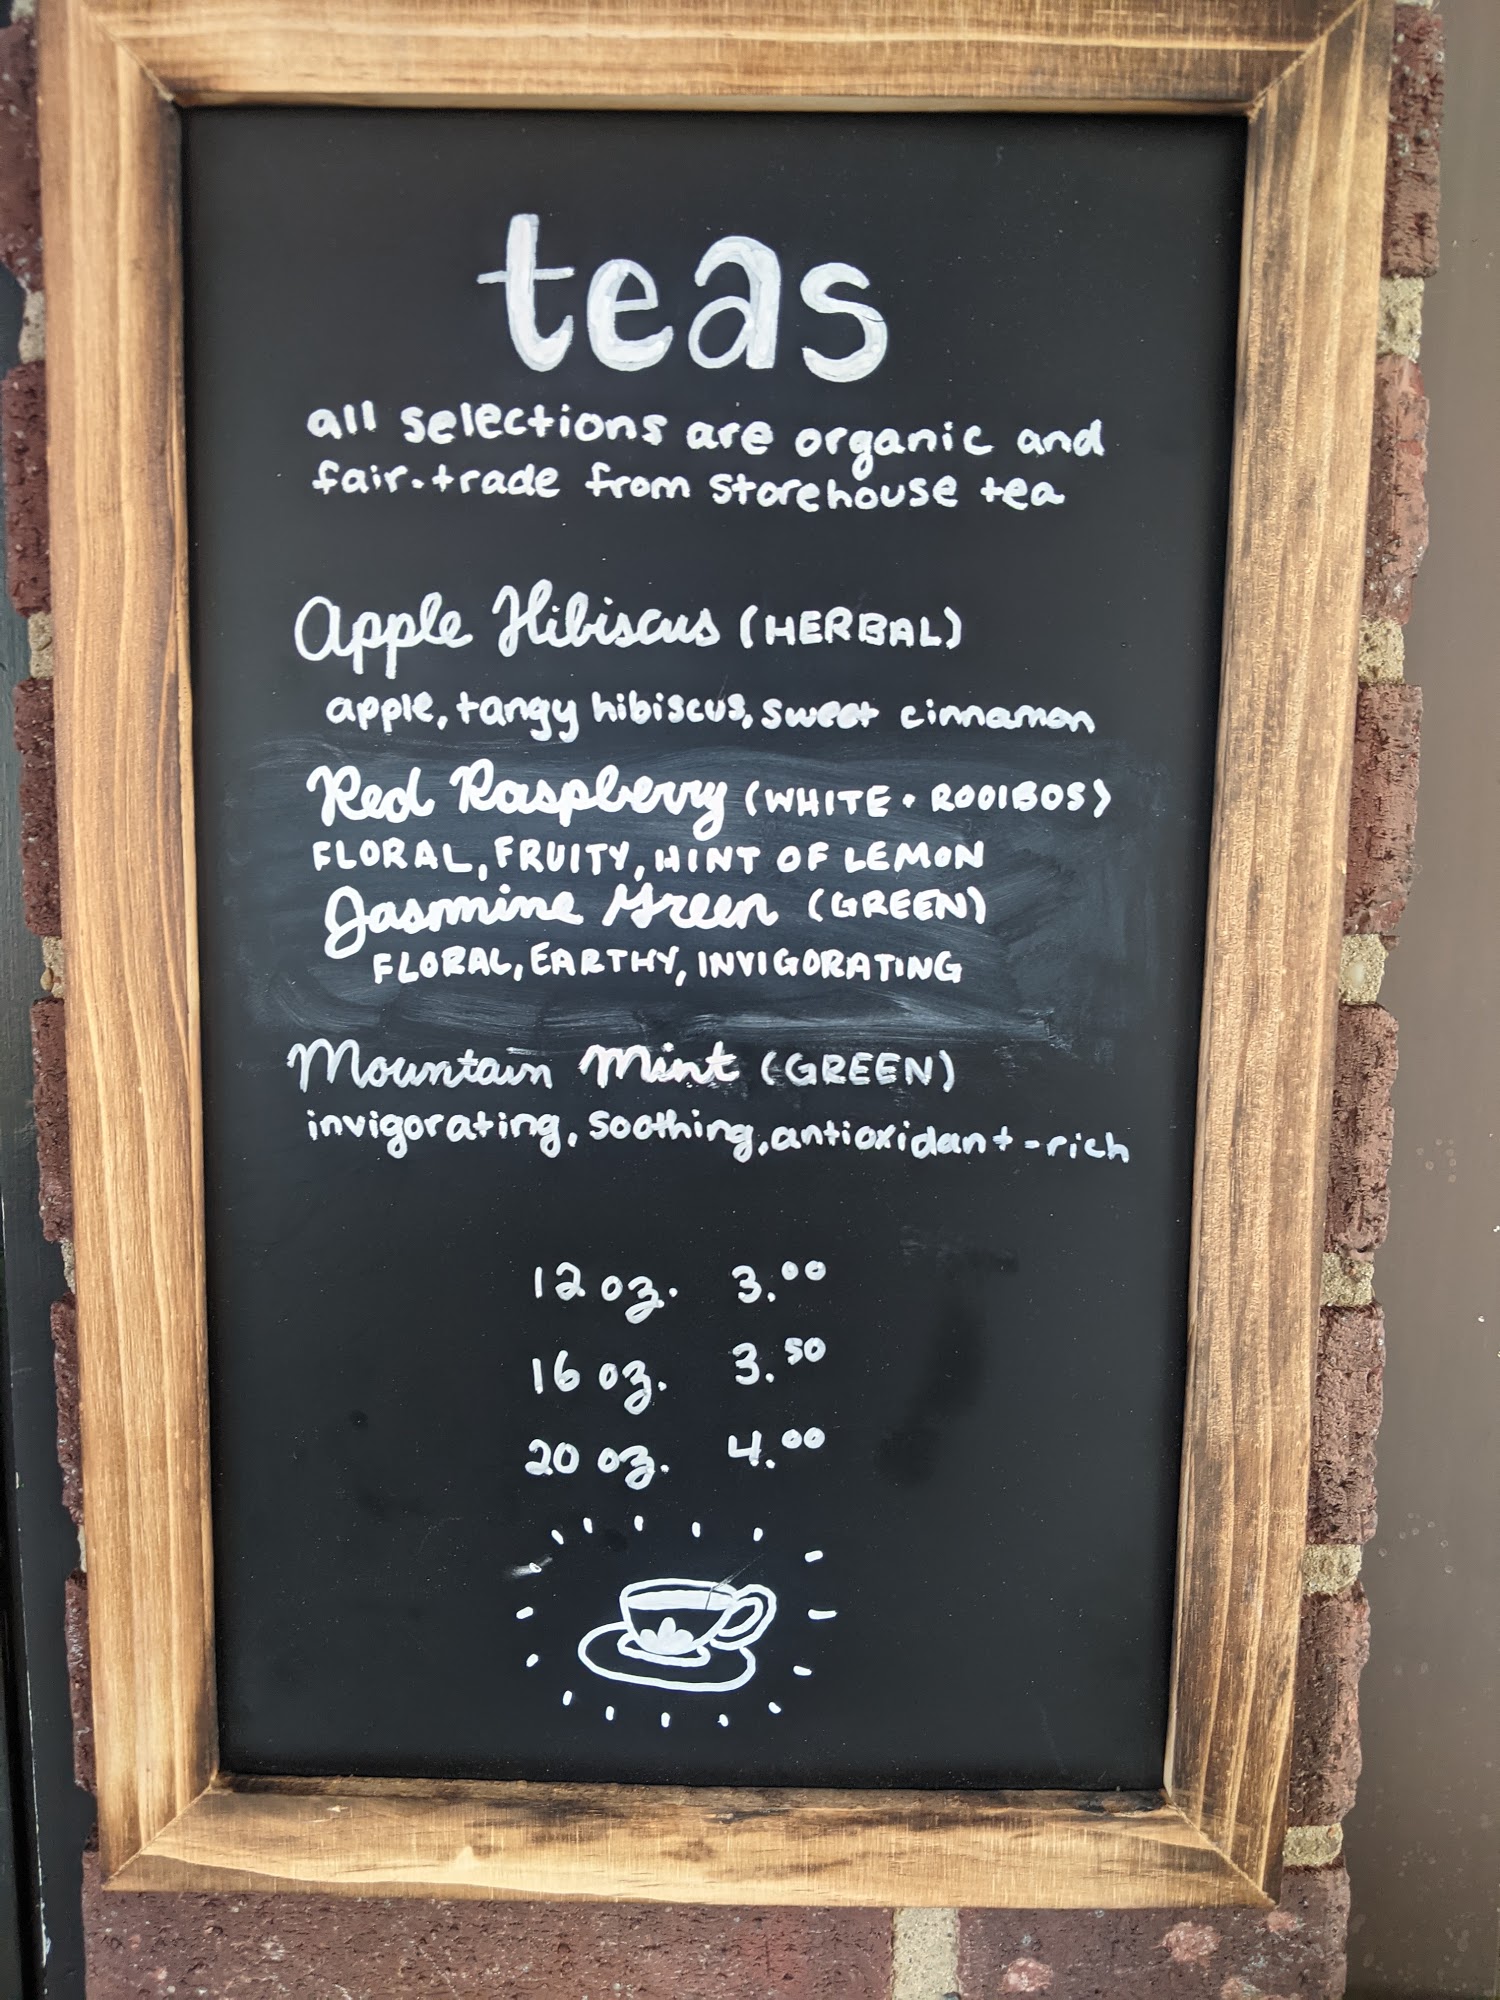 teas
all selections are organic and
fair-trade from storehouse tea
Apple Hibiscus (HERBAL)
apple, tangy hibiscus, sweet cinnamon
Red Raspberry (WHITE + ROOIBOS)
FLORAL, FRUITY, HINT OF LEMON
Jasmine Green (GREEN)
FLORAL, EARTHY, INVIGORATING
Mountain Mint (GREEN)
invigorating, soothing, antioxidant-rich
12 oz. 3.00
16 oz. 3.50
20 oz. 4.00